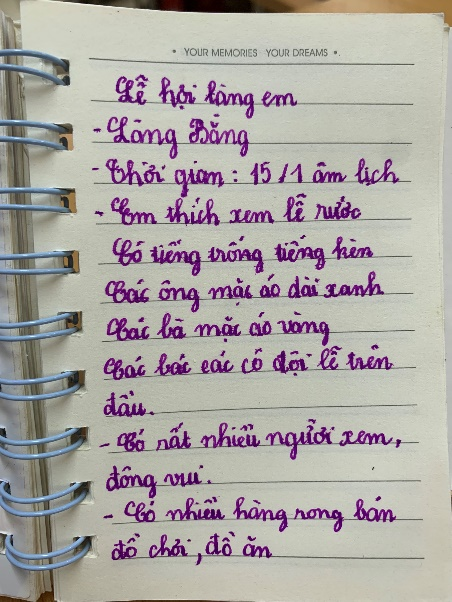 • YOUR MEMORIES YOUR DREAMS •
Lễ hội làng em
- Làng Bằng
- Thời gian: 15/1 âm lịch
- Em thích xem lễ rước
Có tiếng trống tiếng kèn
Các ông mặc áo dài xanh
Các bà mặc áo vàng
Các bác các cô đội lễ trên
đầu.
- Có rất nhiều người xem,
đông vui.
- Có nhiều hàng rong bán
đồ chơi, đồ ăn